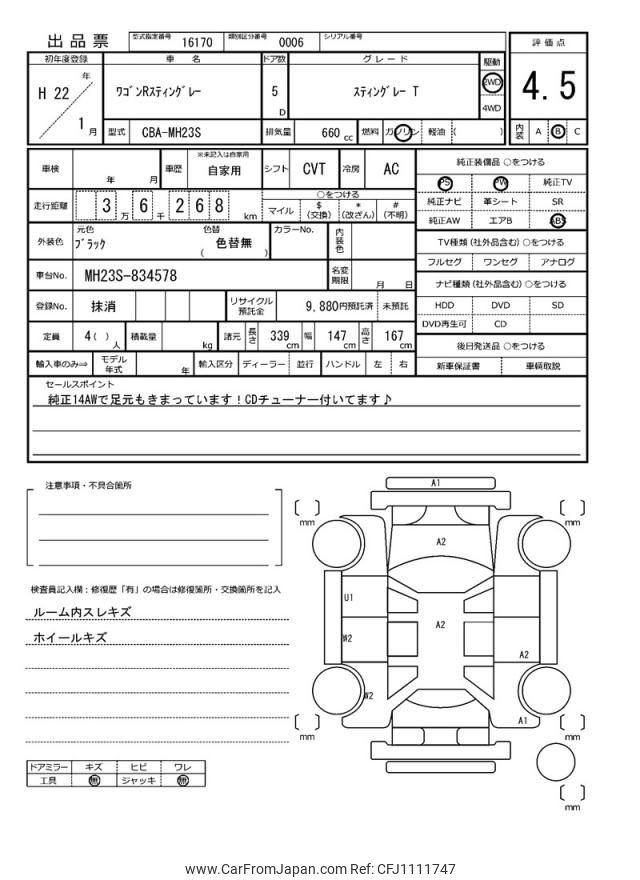 出品票 型式指定番号 16170 類別区分番号 0006 シリアル番号
初年度登録 車 名 ドア数 グレード 駆動 評価点
H 22 年 1 月 ワゴンRスティングレー 5 D スティングレー T 2WD 4WD 4.5
型式 CBA-MH23S 排気量 660 cc 燃料 ガソリン 軽油 ( ) 内装 A B C
車検 年 月 車歴 ※未記入は自家用 自家用 シフト CVT 冷房 AC
走行距離 3 万 6 千 2 6 8 km ○をつける
マイル $ (交換) * (改ざん) # (不明)
外装色 元色 ブラック 色替 ( 色替無 ) カラーNo. 内装色
車台No. MH23S-834578 名変期限 月 日
登録No. 抹消 リサイクル預託金 9,880円預託済 未預託
定員 4( ) 人 積載量 kg 諸元 長さ 339 cm 幅 147 cm 高さ 167 cm
輸入車のみ⇒ モデル年式 年 輸入区分 ディーラー 並行 ハンドル 左 右
純正装備品 ○をつける
PS PW 純正TV
純正ナビ 革シート SR
純正AW エアB ABS
TV種類 (社外品含む) ○をつける
フルセグ ワンセグ アナログ
ナビ種類 (社外品含む) ○をつける
HDD DVD SD
DVD再生可 CD
後日発送品 ○をつける
新車保証書 車輌取説
セールスポイント
純正14AWで足元もきまっています！CDチューナー付いてます♪
注意事項・不具合箇所
検査員記入欄：修復歴「有」の場合は修復箇所・交換箇所を記入
ルーム内スレキズ
ホイールキズ
ドアミラー キズ ヒビ ワレ
工具 無 ジャッキ 無
A1
[ ] mm [ ] mm
A2
U1
A2
W2
A2
W2
A1
[ ] mm [ ] mm
[ ] mm
www.CarFromJapan.com Ref: CFJ1111747